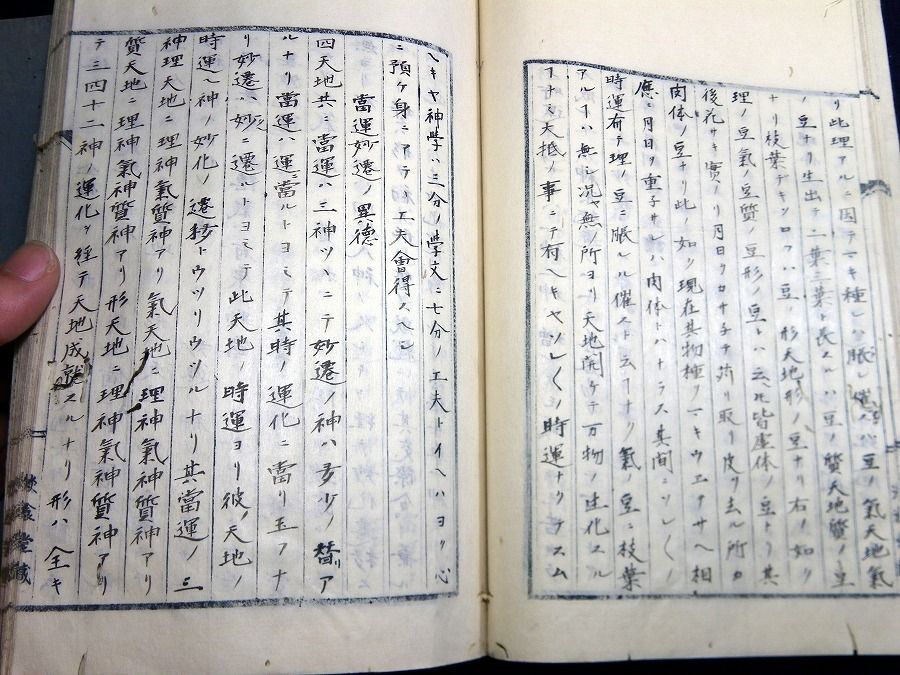 リ此理アルニ因テマキ種シハ脹レ催スハ豆ノ氣天地氣
ノ豆ナリ生出テ二葉三葉ト長スルハ豆ノ質天地質ノ豆
ナリ枝葉デキソロフハ豆ノ形天地形ノ豆ナリ右ノ如ク
理ノ豆氣ノ豆質ノ豆形ノ豆トハ云ヘ𪜈皆虚体ノ豆トリ其
後花サキ実ノリ月日ヲカサチテ苅リ取リ皮リ去ル所カ
肉体ノ豆ナリ此ノ如ク現在其物種ノマキウエサヘ相
應ニ月日ヲ重子サレハ肉体トハナラス其間ニソレ〱ノ
時運有テ理ノ豆ニ脹レル催スト云フナク氣ノ豆ニ枝葉
アルフハ無シ况ヤ無ノ所ヨリ天地開ケテ万物ノ生化スル
フナニ大抵ノ事ニテ有ヘキヤソレ〱ノ時運ナリテスム
ヘキヤ神學ハ三分ノ学文ニ七分ノ工夫トイヘハヨク心
ニ預ケ身ニアテヽ工夫會得スヘシ
當運妙遷ノ異德
四天地共ニ當運ハ三神ツヽニテ妙遷ノ神ハ多少ノ替リア
ルナリ當運ハ運ニ當ルトヨミテ其時ノ運化ニ當リ玉フナ
リ妙遷ハ妙ニ遷ルトヨミテ此天地ノ時運ヨリ彼ノ天地ノ
時運ヘ神ノ妙化ノ遷移トウツリウツルナリ其當運ノ三
神理天地ニ理神氣質神アリ氣天地ニ理神氣神質神アリ
質天地ニ理神氣神質神アリ形天地ニ理神氣神質神アリ
テ三四十二神ノ運化ヲ経テ天地成就スルナリ形ハ全キ